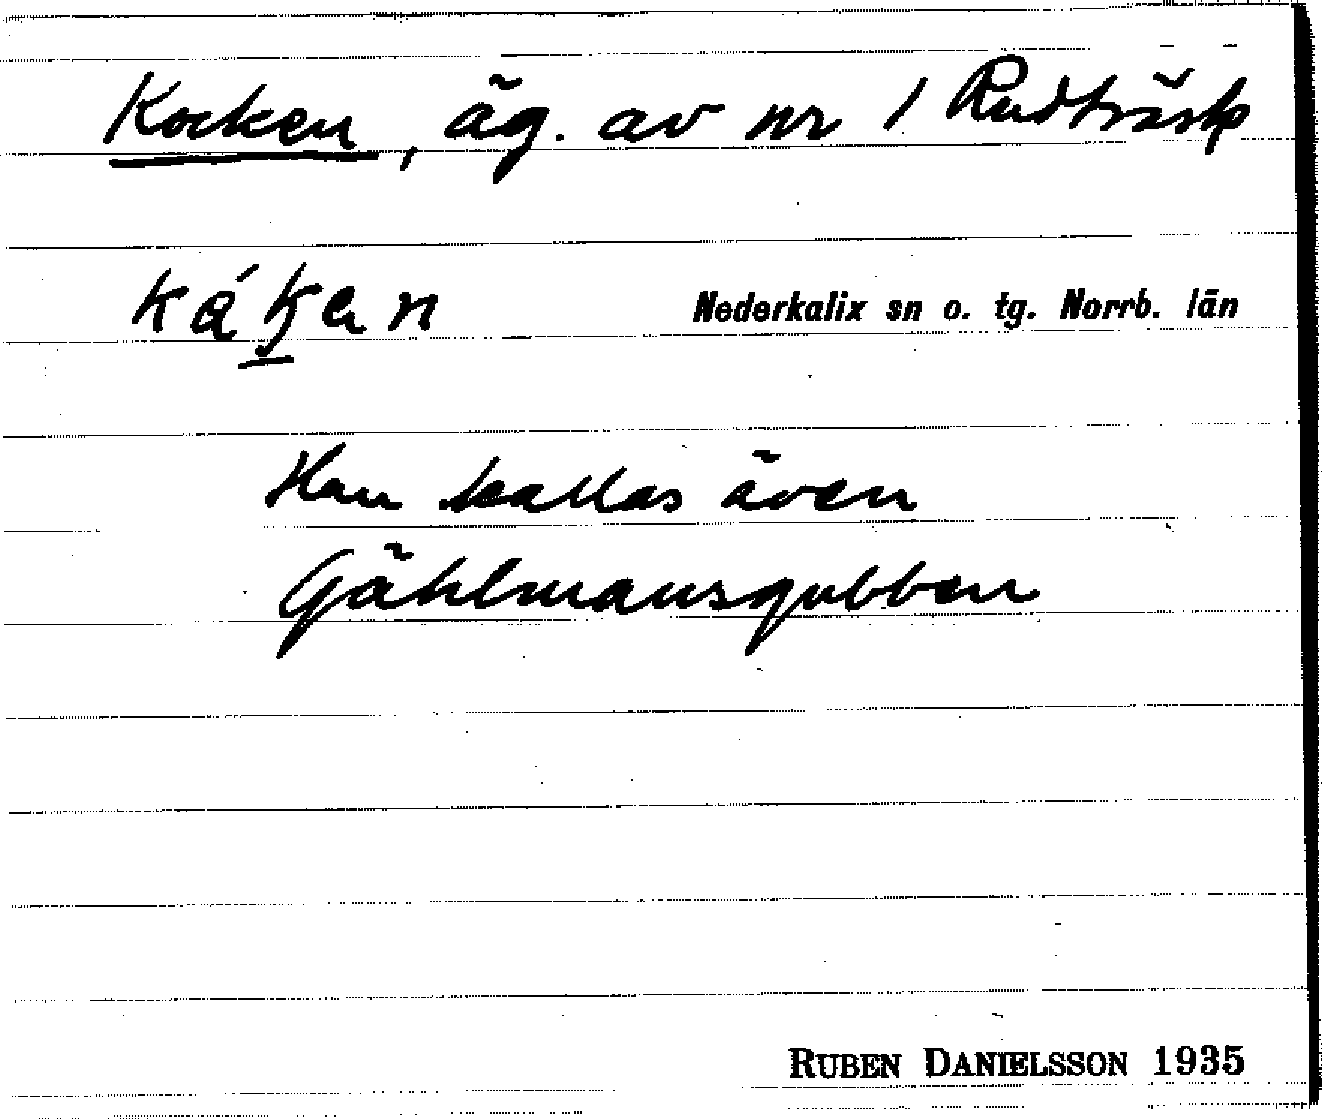 Kocken, äg. av nr 1 Rudträsk
Nederkalix sn o. tg. Norrb. län
Han kallas även
Gählmansgubben
RUBEN DANIELSSON 1935